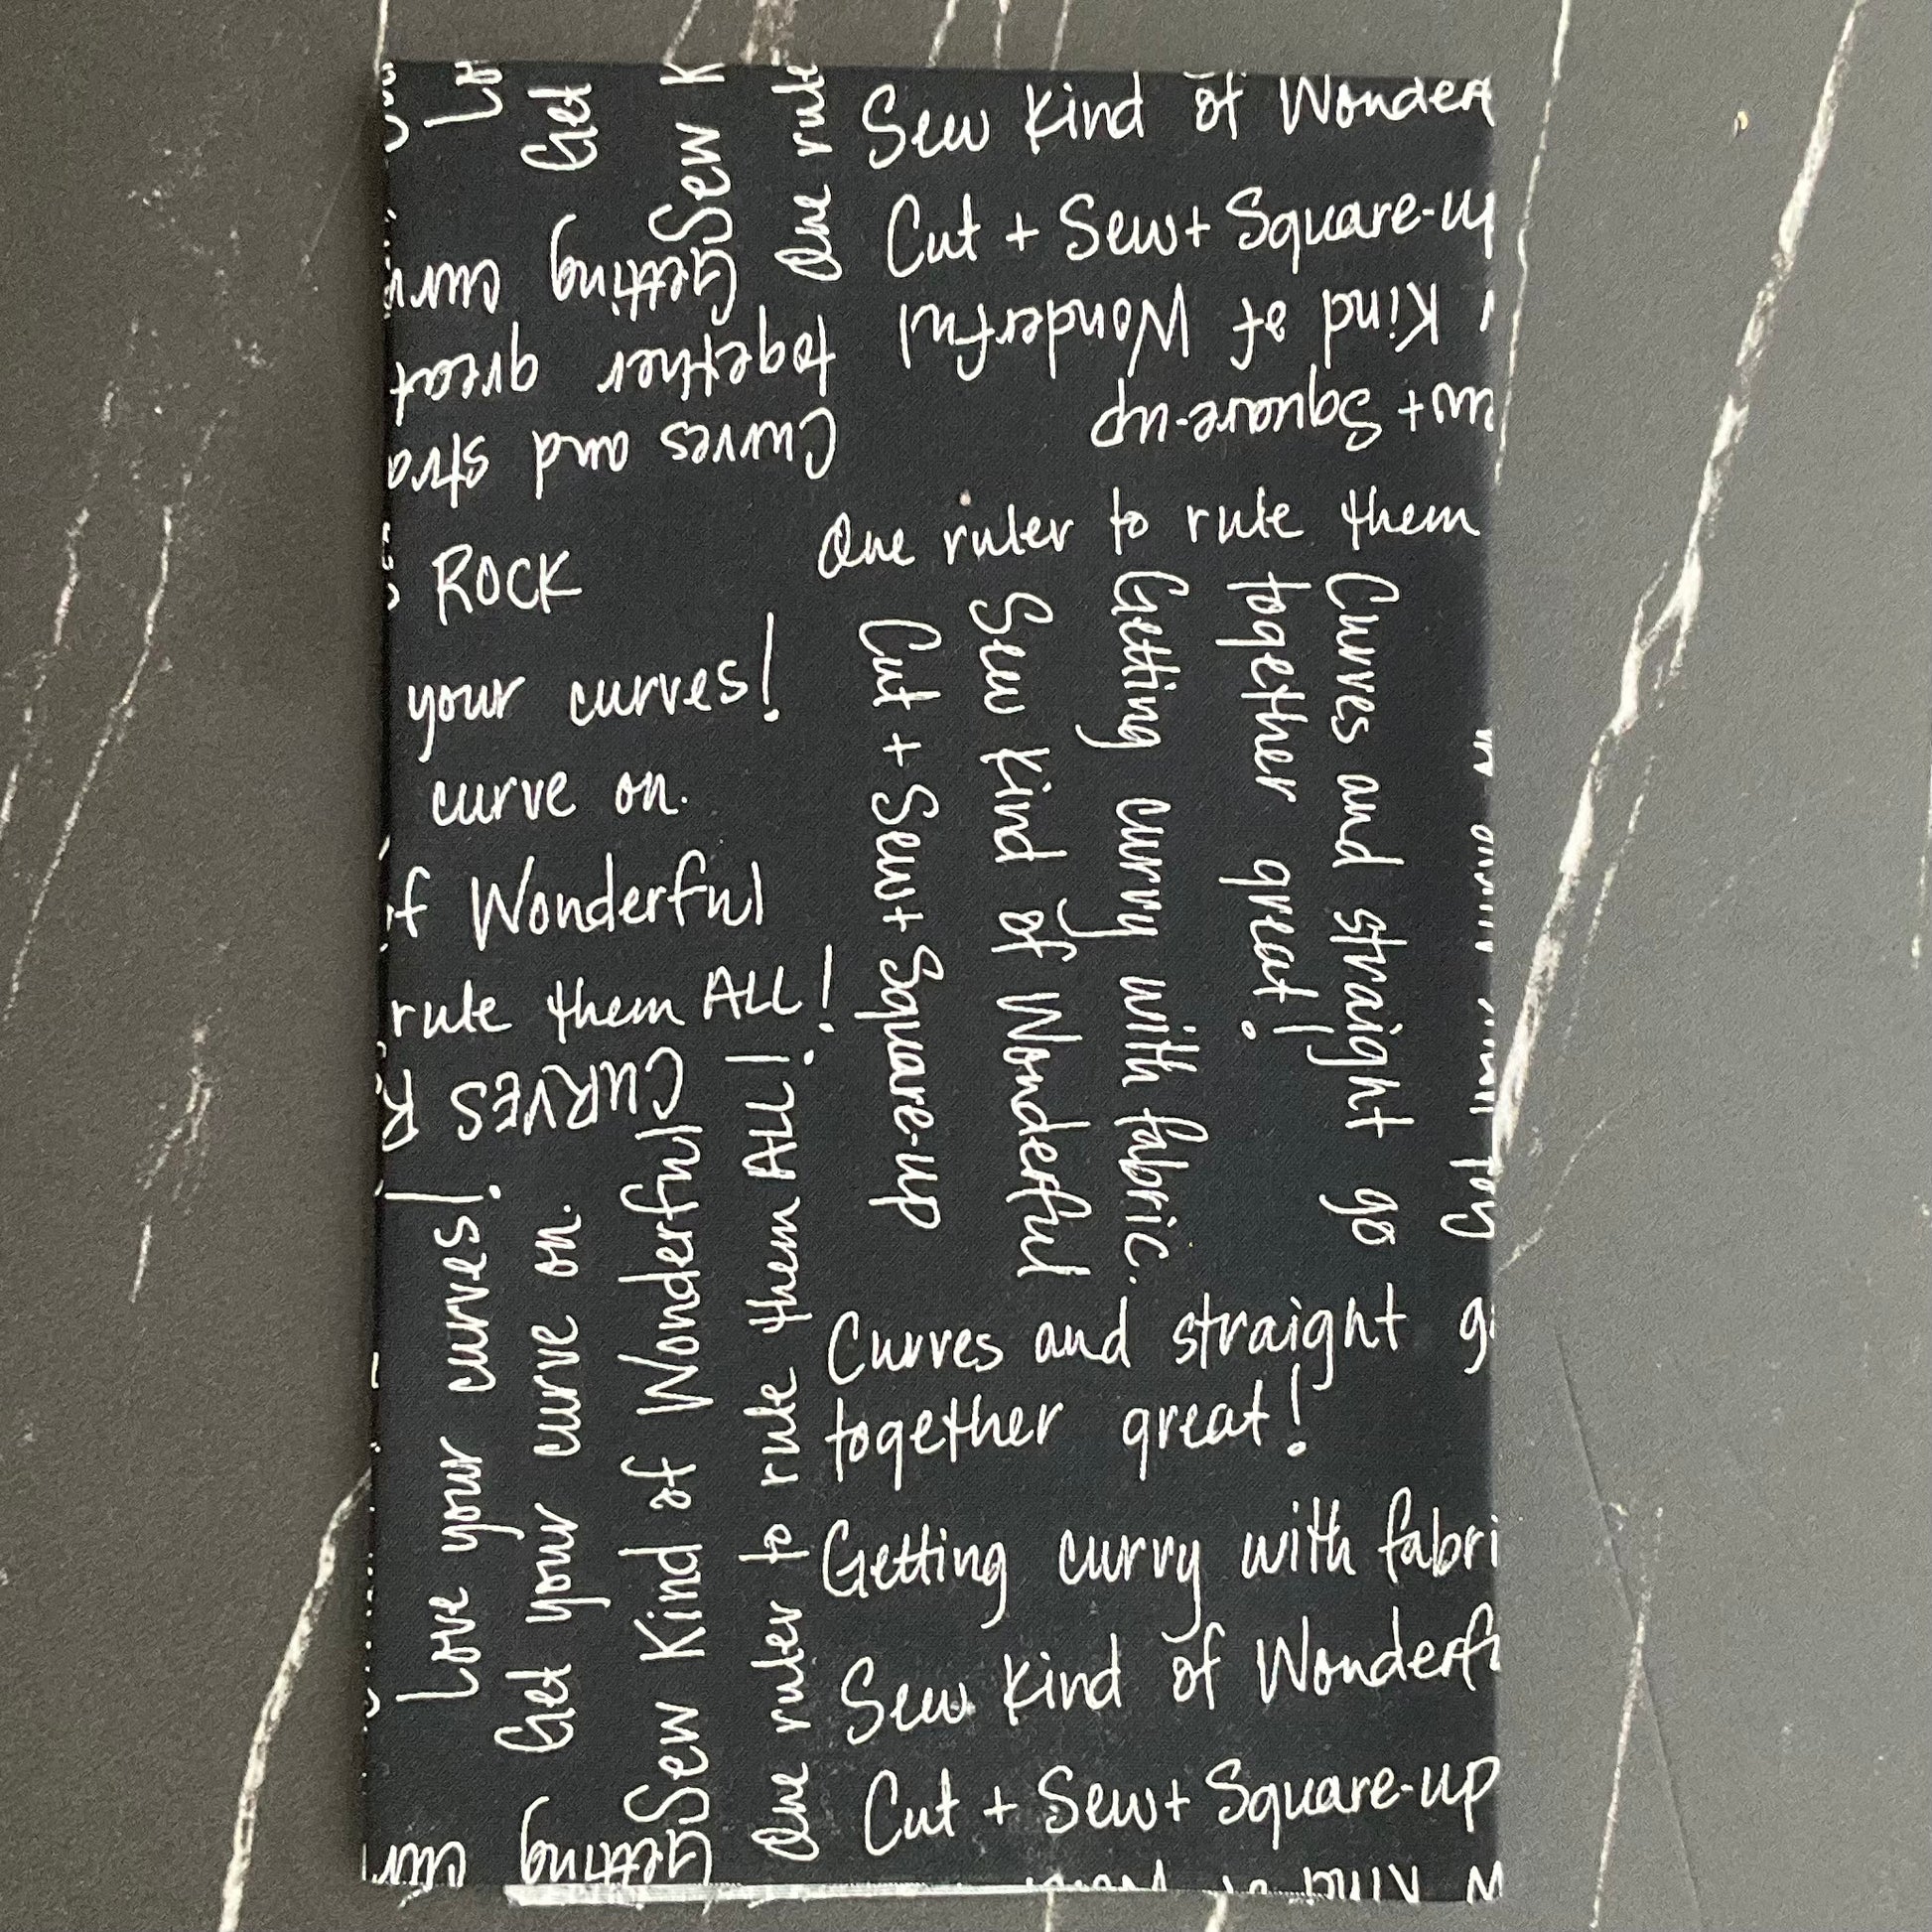 Sew Kind of Wonderf
Cut + Sew + Square-up
Kind of Wonderful
+ Square-up
One ruler to rule them
Get
Sew K
One rule
Getting curv
together great
Curves and stra
ROCK
your curves!
curve on.
of Wonderful
rule them ALL!
CURVES R
Cut + Sew + Square-up
Sew Kind of Wonderful
Getting curvy with fabric.
Curves and straight go
together great!
Love your curves!
Get your curve on.
Sew Kind of Wonderful
One ruler to rule them ALL!
Curves and straight g
together great!
Getting curvy with fabri
Sew Kind of Wonderf
Cut + Sew + Square-up
Getting